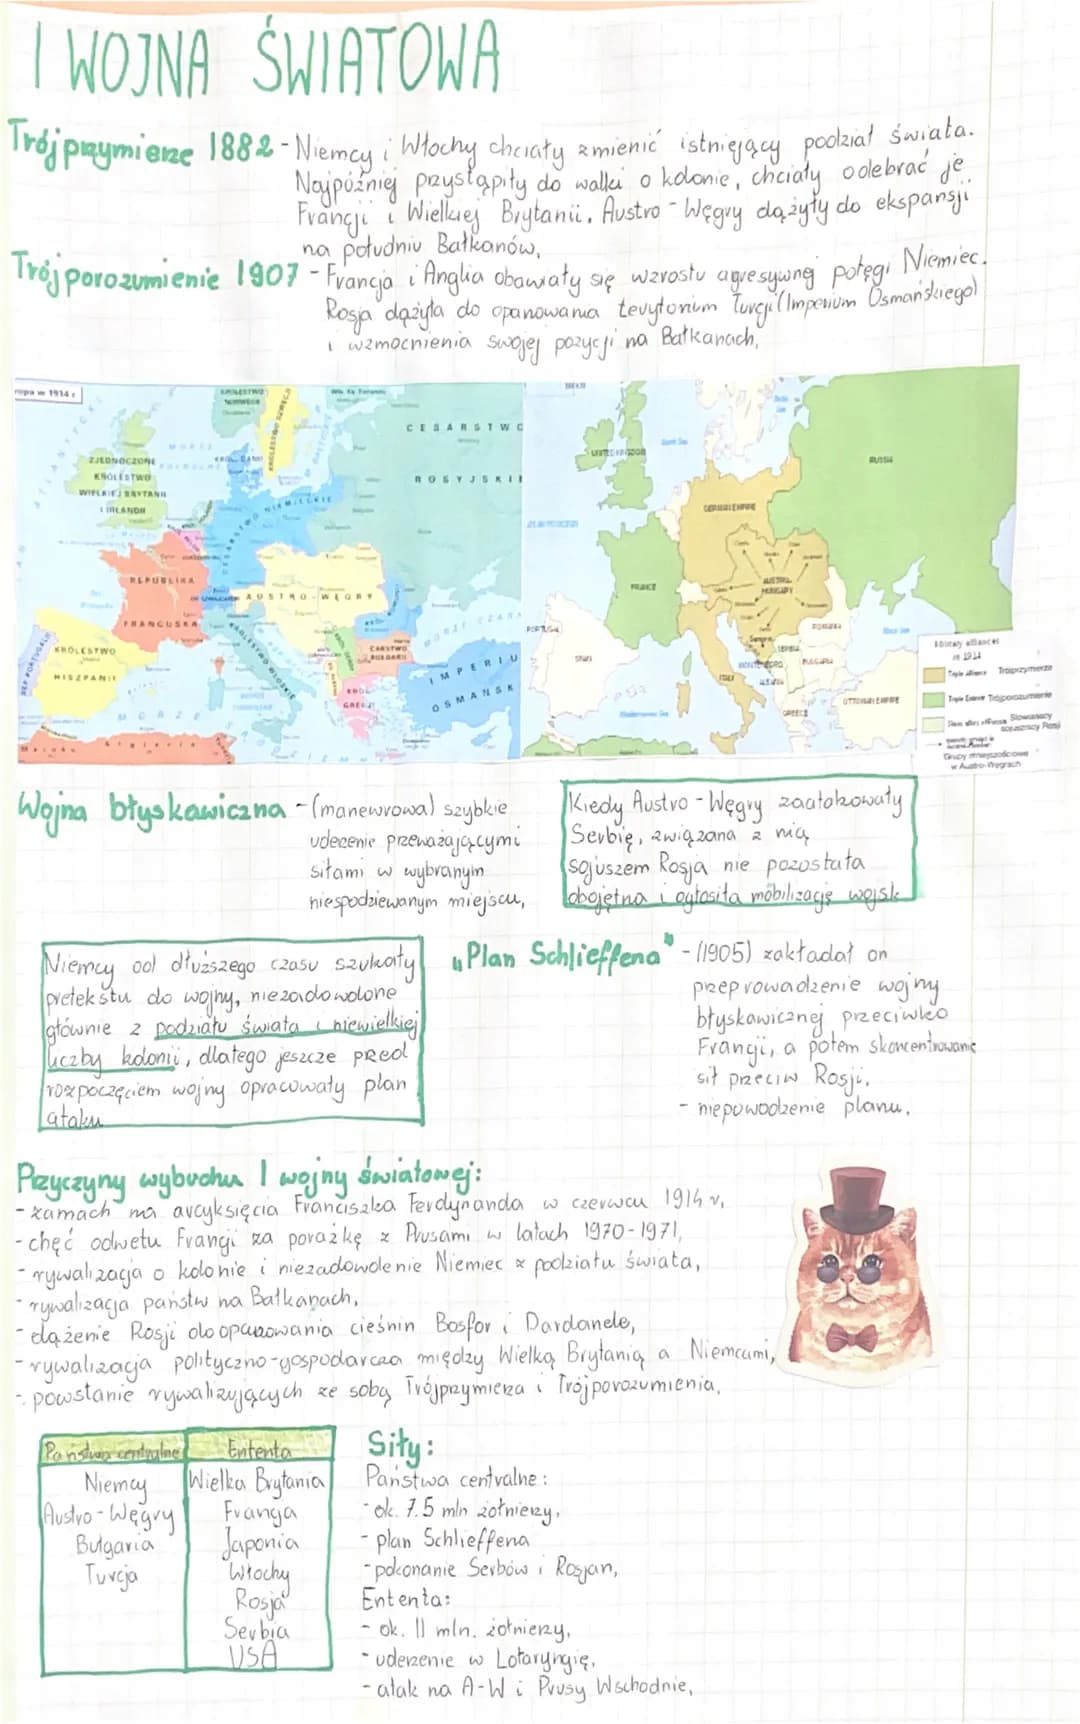 I WOJNA ŚWIATOWA
Trójprzymierze 1882 - Niemcy i Włochy chciały zmienić istniejący podział świata.
Najpóźniej przystąpiły do walki o kolonie, chciały odebrać je
Francji i Wielkiej Brytanii. Austro-Węgry dążyły do ekspansji
na południu Bałkanów,
Trójporozumienie 1907 - Francja i Anglia obawiały się wzrostu agresywnej potęgi Niemiec.
Rosja dążyła do opanowania terytorium Turcji (Imperium Osmańskiego)
i wzmocnienia swojej pozycji na Bałkanach,
ropa w 1914 r.
KRÓLESTWO
NORWEGII
KRÓLESTWO SZWECJI
CESARSTWO
ROSYJSKIE
ZJEDNOCZONE
KRÓLESTWO
WIELKIEJ BRYTANII
I IRLANDII
REPUBLIKA
FRANCUSKA
AUSTRO-WĘGRY
KRÓLESTWO WŁOSKIE
KRÓLESTWO
HISZPANII
REP. PORTUGALII
CARSTWO
BUŁGARII
KRÓL.
GRECJI
IMPERIU
OSMAŃSK
MORZE CZAR
Maroko
Algieria
UNITED KINGDOM
RUSSIA
GERMAN EMPIRE
FRANCE
AUSTRIA-
HUNGARY
PORTUGAL
SPAIN
ITALY
ROMANIA
SERBIA
BULGARIA
MONTENEGRO
ALBANIA
GREECE
OTTOMAN EMPIRE
North Sea
Black Sea
Mediterranean Sea
Military alliances
in 1914
Triple Alliance Trójprzymierze
Triple Entente Trójporozumienie
Słowiańscy
sojusznicy Rosji
Grupy mniejszościowe
w Austro-Węgrach
Wojna błyskawiczna - (manewrowa) szybkie
uderzenie przeważającymi
siłami w wybranym
niespodziewanym miejscu,
Kiedy Austro-Węgry zaatakowały
Serbię, związana z nią
sojuszem Rosja nie pozostała
obojętna i ogłosiła mobilizację wojsk
Niemcy od dłuższego czasu szukały
pretekstu do wojny, niezadowolone
głównie z podziału świata i niewielkiej
liczby kolonii, dlatego jeszcze przed
rozpoczęciem wojny opracowały plan
ataku
„Plan Schlieffena" - (1905) zakładał on
przeprowadzenie wojny
błyskawicznej przeciwko
Francji, a potem skoncentrowanie
sił przeciw Rosji,
- niepowodzenie planu,
Przyczyny wybuchu I wojny światowej:
- zamach na arcyksięcia Franciszka Ferdynanda w czerwcu 1914 r,
- chęć odwetu Francji za porażkę z Prusami w latach 1970-1971,
- rywalizacja o kolonie i niezadowolenie Niemiec z podziału świata,
- rywalizacja państw na Bałkanach,
- dążenie Rosji do opanowania cieśnin Bosfor i Dardanele,
- rywalizacja polityczno-gospodarcza między Wielką Brytanią a Niemcami,
- powstanie rywalizujących ze sobą Trójprzymierza i Trójporozumienia,
Państwa centralne Ententa
Niemcy Wielka Brytania
Austro-Węgry Francja
Bułgaria Japonia
Turcja Włochy
Rosja
Serbia
USA
Siły:
Państwa centralne:
- ok. 7.5 mln żołnierzy,
- plan Schlieffena
- pokonanie Serbów i Rosjan,
Ententa:
- ok. 11 mln. żołnierzy,
- uderzenie w Lotaryngię,
- atak na A-W i Prusy Wschodnie,